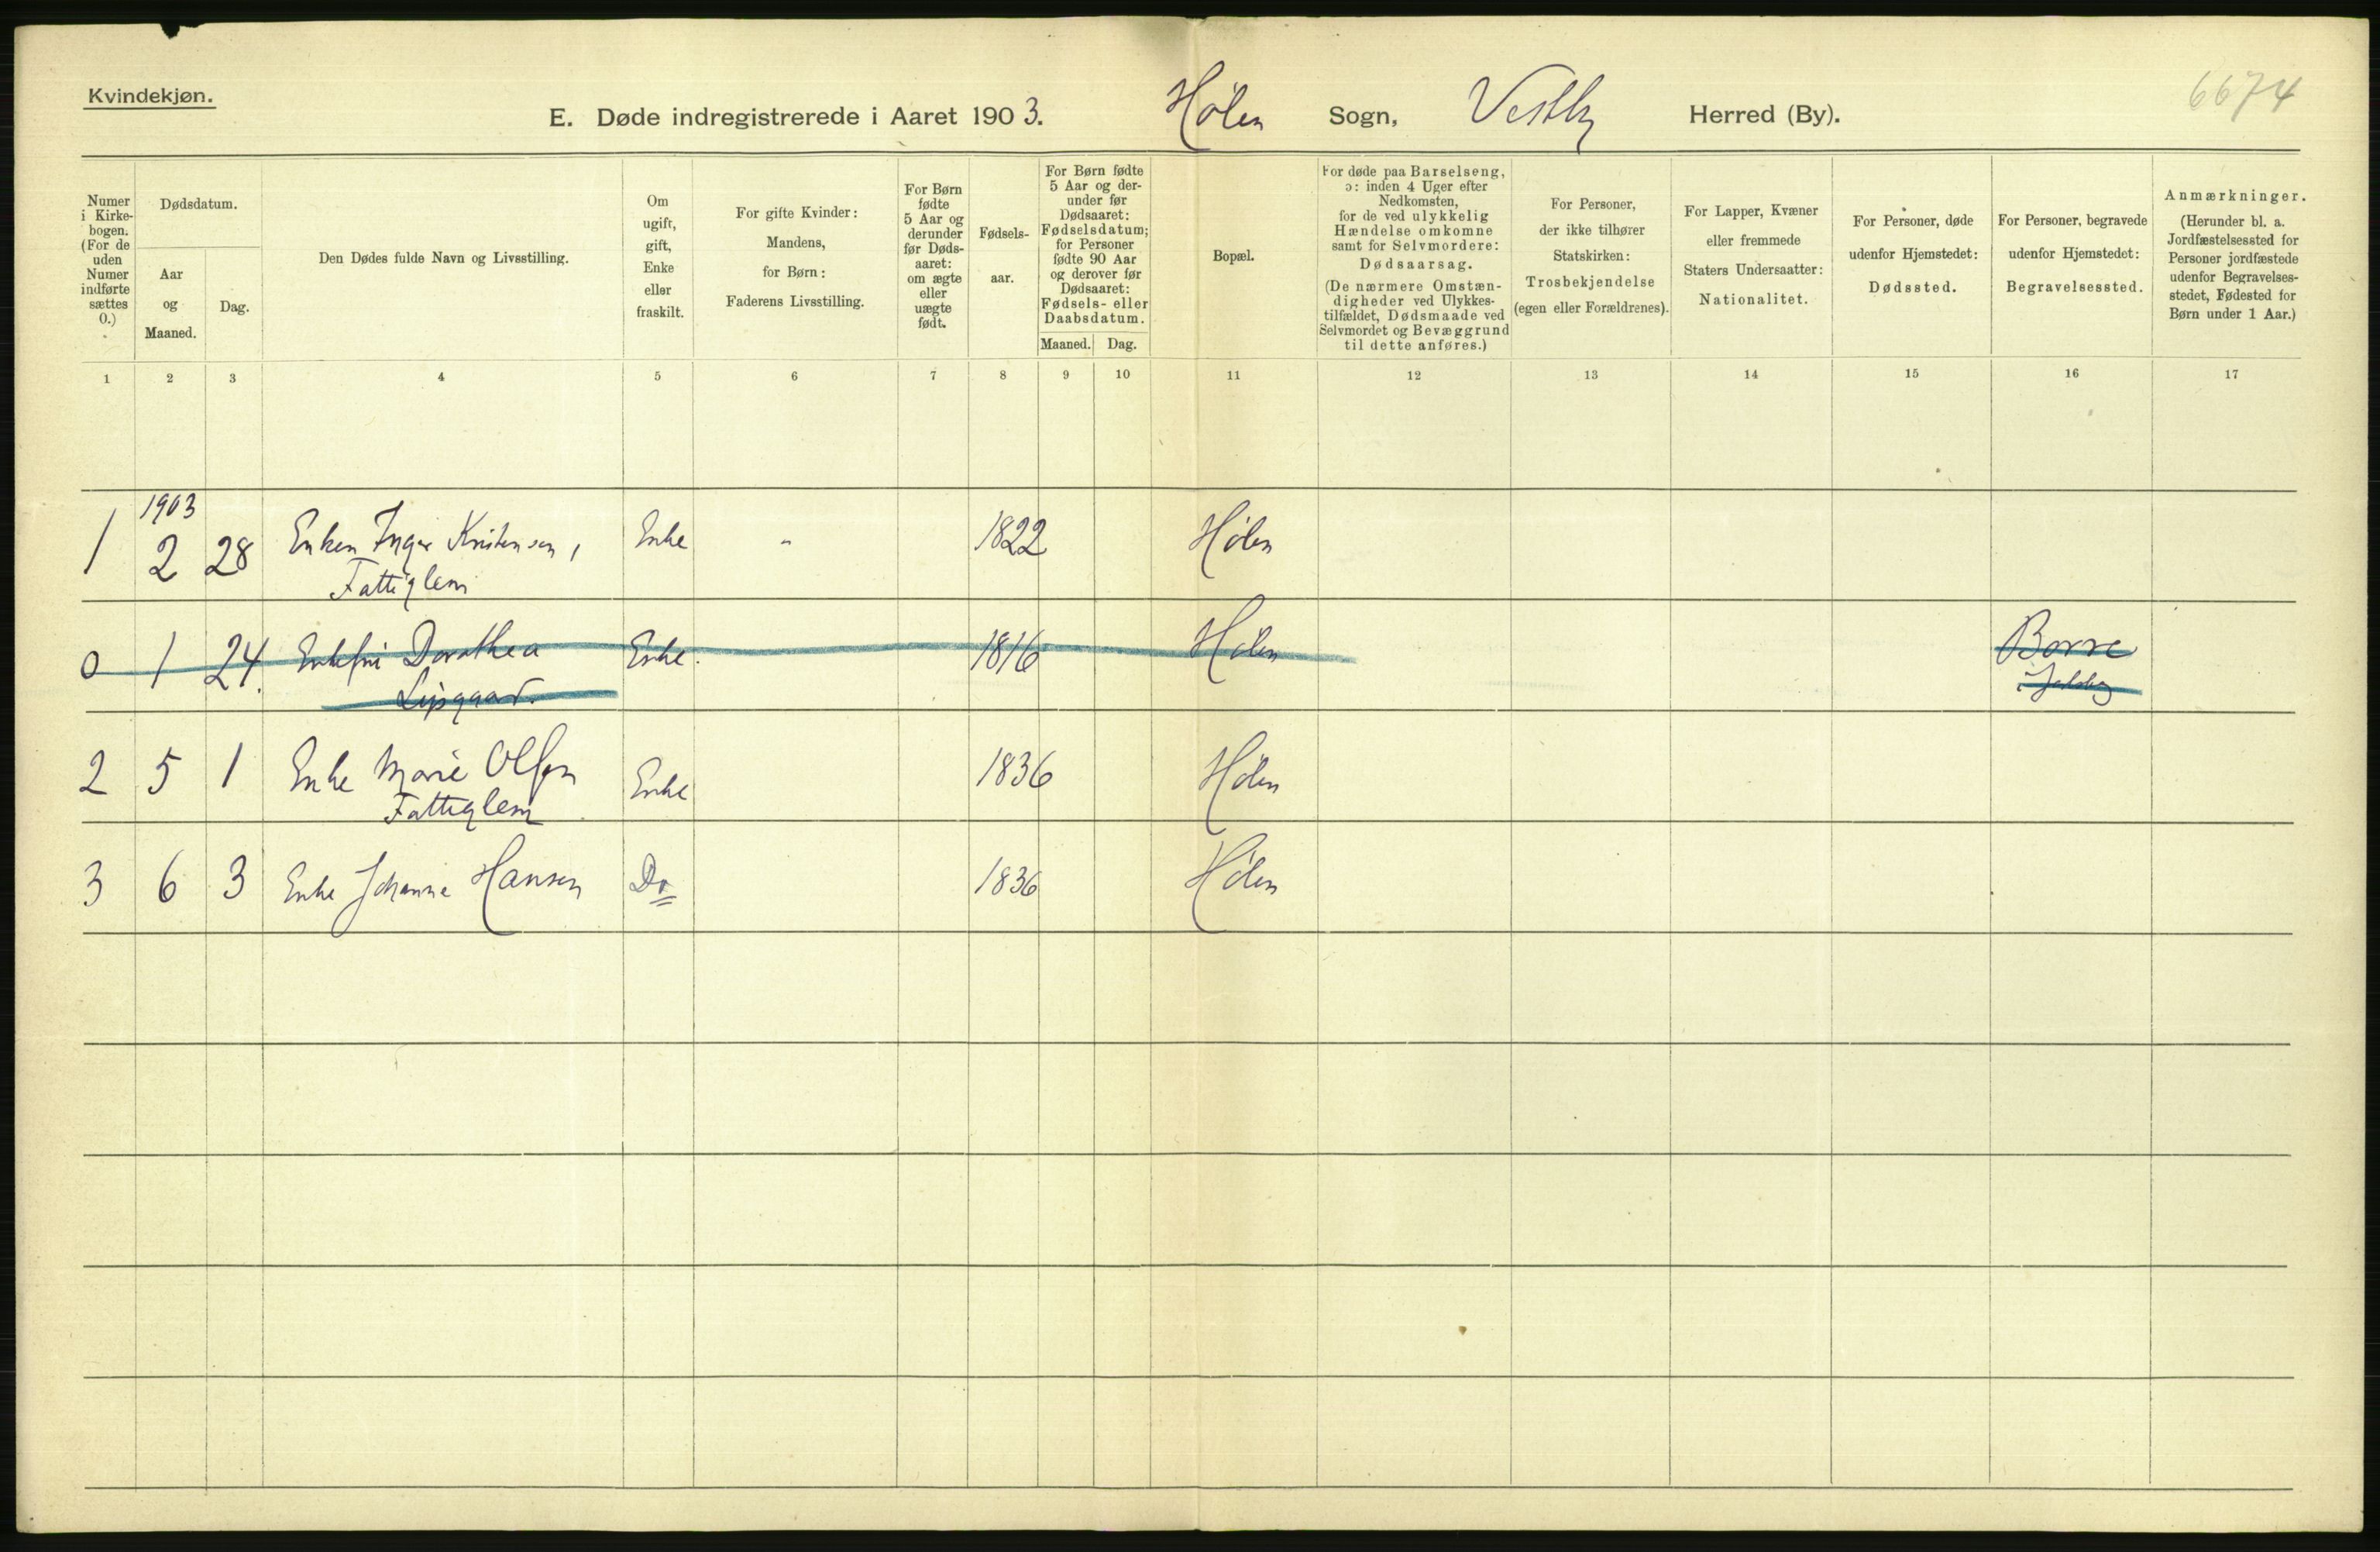 Kvindekjøn.
E. Døde indregistrerede i Aaret 1903. Hølen Sogn, Vestby Herred (By).
6674
Numer
i Kirke-
bogen.
(For de
uden
Numer
indførte
sættes
0.)
Dødsdatum.
Aar
og
Maaned.
Dag.
Den Dødes fulde Navn og Livsstilling.
Om
ugift,
gift,
Enke
eller
fraskilt.
For gifte Kvinder:
Mandens,
for Børn:
Faderens Livsstilling.
For Børn
fødte
5 Aar og
derunder
før Døds-
aaret:
om ægte
eller
uægte
født.
Fødsels-
aar.
For Børn fødte
5 Aar og der-
under før
Dødsaaret:
Fødselsdatum;
for Personer
fødte 90 Aar
og derover før
Dødsaaret:
Fødsels- eller
Daabsdatum.
Maaned. Dag.
Bopæl.
For døde paa Barselseng,
ɔ: inden 4 Uger efter
Nedkomsten,
for de ved ulykkelig
Hændelse omkomne
samt for Selvmordere:
Dødsaarsag.
(De nærmere Omstæn-
digheder ved Ulykkes-
tilfældet, Dødsmaade ved
Selvmordet og Bevæggrund
til dette anføres.)
For Personer,
der ikke tilhører
Statskirken:
Trosbekjendelse
(egen eller Forældrenes).
For Lapper, Kvæner
eller fremmede
Staters Undersaatter:
Nationalitet.
For Personer, døde
udenfor Hjemstedet:
Dødssted.
For Personer, begravede
udenfor Hjemstedet:
Begravelsessted.
Anmærkninger.
(Herunder bl. a.
Jordfæstelsessted for
Personer jordfæstede
udenfor Begravelses-
stedet, Fødested for
Børn under 1 Aar.)
1 2 3 4 5 6 7 8 9 10 11 12 13 14 15 16 17
1903
1 2 28 Enken Inger Kristensen, Enke " 1822 Hølen
Fattiglem
0 1 24. Enkefru Dorothea Enke. 1816 Hølen Borre
2 5 1 Enke Marie Olsen Enke 1836 Hølen
Fattiglem
3 6 3 Enke Johanne Hansen Do 1836 Hølen